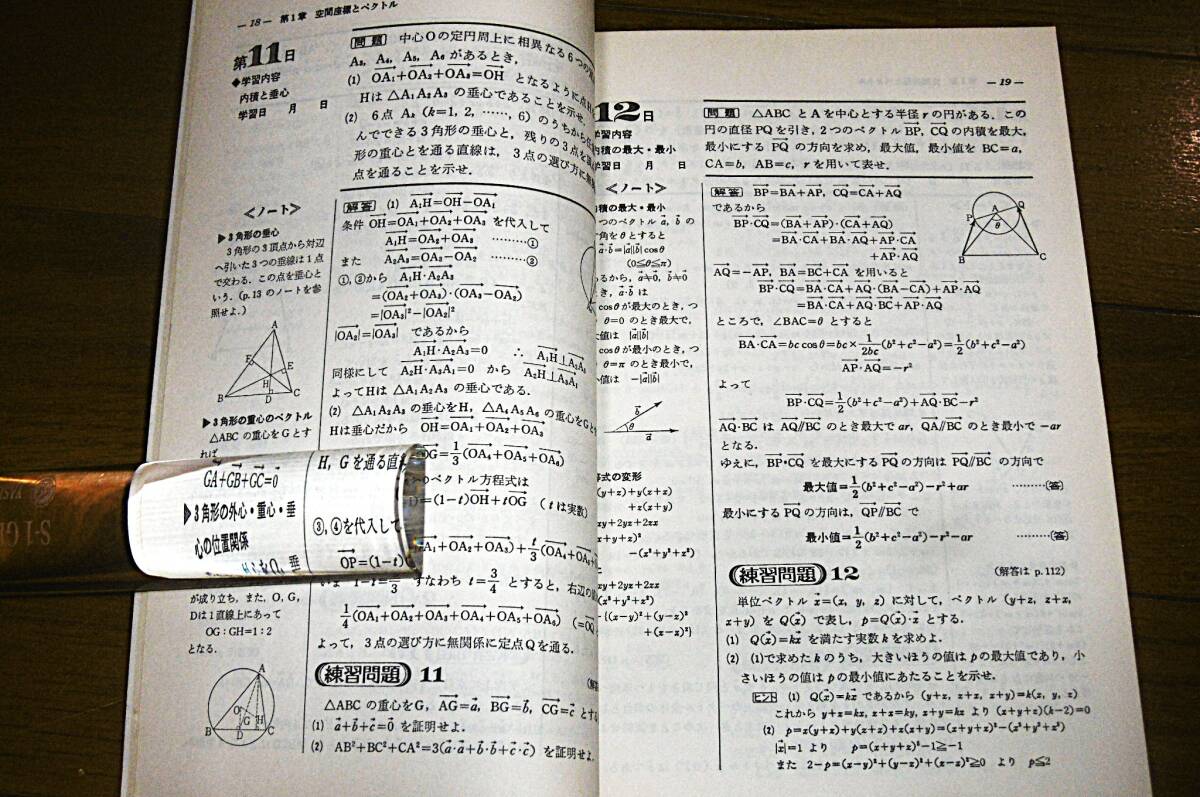 — 18 — 第1章 空間座標とベクトル
第11日
◆学習内容
内積と垂心
学習日 月 日
問題 中心Oの定円周上に相異なる6つの
A₃, A₄, A₅, A₆ があるとき,
(1) OA₁+OA₂+OA₃=OH となるように点H
Hは△A₁A₂A₃ の垂心であることを示せ.
(2) 6点 Aₖ (k=1, 2, ……, 6) のうちから
んでできる3角形の垂心と, 残りの3点を
形の重心とを通る直線は, 3点の選び方に無
点を通ることを示せ.
<ノート>
▶3角形の垂心
3角形の3頂点から対辺
へ引いた3つの垂線は1点
で交わる. この点を垂心と
いう. (p.13 のノートを参
照せよ.)
A
E
E
H
B
D
C
▶3角形の重心のベクトル
△ABC の重心をGとす
れば
GA+GB+GC=0
▶3角形の外心・重心・垂
心の位置関係
が成り立ち, また, O, G,
Dは1直線上にあって
OG:GH=1:2
となる.
A
O
G
H
B
D
C
解答 (1) A₁H=OH−OA₁
条件 OH=OA₁+OA₂+OA₃ を代入して
A₁H=OA₂+OA₃ ………①
また A₂A₃=OA₃−OA₂ ………②
①, ②から A₁H·A₂A₃
=(OA₂+OA₃)·(OA₃−OA₂)
=|OA₃|²−|OA₂|²
|OA₂|=|OA₃| であるから
A₁H·A₂A₃=0 ∴ A₁H⊥A₂A₃
同様にして A₂H·A₃A₁=0 から A₂H⊥A₃A₁
よってHは △A₁A₂A₃ の垂心である.
(2) △A₁A₂A₃ の垂心をH, △A₄A₅A₆ の重心をGとす
Hは垂心だから OH=OA₁+OA₂+OA₃
OG=1/3(OA₄+OA₅+OA₆)
H, G を通る直
のベクトル方程式は
=(1−t)OH+tOG (tは実数)
③, ④を代入して
OP=(1−t)
(OA₁+OA₂+OA₃)+t/3(OA₄+OA₅
すなわち t=3/4 とすると, 右辺の
1/4(OA₁+OA₂+OA₃+OA₄+OA₅+OA₆) (=OQ
よって, 3点の選び方に無関係に定点Qを通る.
練習問題 11
△ABC の重心をG, AG=a, BG=b, CG=c とす
(1) a+b+c=0 を証明せよ.
(2) AB²+BC²+CA²=3(a·a+b·b+c·c) を証明せよ.
— 19 —
12日
学習内容
内積の最大・最小
学習日 月 日
問題 △ABC とAを中心とする半径 r の円がある. この
円の直径PQを引き, 2つのベクトル BP, CQ の内積を最大,
最小にする PQ の方向を求め, 最大値, 最小値を BC=a,
CA=b, AB=c, r を用いて表せ.
<ノート>
内積の最大・最小
つのベクトル a, b の
角をθとすると
a·b=|a||b|cosθ
(0≦θ≦π)
るから, a≠0, b≠0
き, a·b は
cosθが最大のとき, つ
θ=0 のとき最大で,
大値は |a||b|
cosθが最小のとき, つ
θ=π のとき最小で,
小値は −|a||b|
b
θ
a
等式の変形
(y+z)+y(x+z)
+z(x+y)
xy+2yz+2zx
+y+z)²
−(x²+y²+z²)
xy+2yz+2zx
(x²+y²+z²)
−{(x−y)²+(y−z)²
+(z−x)²}
解答 BP=BA+AP, CQ=CA+AQ
であるから
BP·CQ=(BA+AP)·(CA+AQ)
=BA·CA+BA·AQ+AP·CA
+AP·AQ
P
A
Q
θ
B
C
AQ=−AP, BA=BC+CA を用いると
BP·CQ=BA·CA+AQ·(BA−CA)+AP·AQ
=BA·CA+AQ·BC+AP·AQ
ところで, ∠BAC=θ とすると
BA·CA=bc cosθ=bc×1/2bc(b²+c²−a²)=1/2(b²+c²−a²)
AP·AQ=−r²
よって
BP·CQ=1/2(b²+c²−a²)+AQ·BC−r²
AQ·BC は AQ∥BC のとき最大で ar, QA∥BC のとき最小で −ar
となる.
ゆえに, BP·CQ を最大にする PQ の方向は PQ∥BC の方向で
最大値=1/2(b²+c²−a²)−r²+ar ………(答)
最小にする PQ の方向は, QP∥BC で
最小値=1/2(b²+c²−a²)−r²−ar ………(答)
練習問題 12 (解答は p.112)
単位ベクトル x=(x, y, z) に対して, ベクトル (y+z, z+x,
x+y) を Q(x) で表し, p=Q(x)·x とする.
(1) Q(x)=kx を満たす実数 k を求めよ.
(2) (1)で求めた k のうち, 大きいほうの値は p の最大値であり, 小
さいほうの値は p の最小値にあたることを示せ.
ヒント (1) Q(x)=kx であるから (y+z, z+x, x+y)=k(x, y, z)
これから y+z=kx, z+x=ky, x+y=kz より (x+y+z)(k−2)=0
(2) p=x(y+z)+y(z+x)+z(x+y)=(x+y+z)²−(x²+y²+z²)
|x|=1 より p=(x+y+z)²−1≧−1
また 2−p=(x−y)²+(y−z)²+(z−x)²≧0 より p≦2